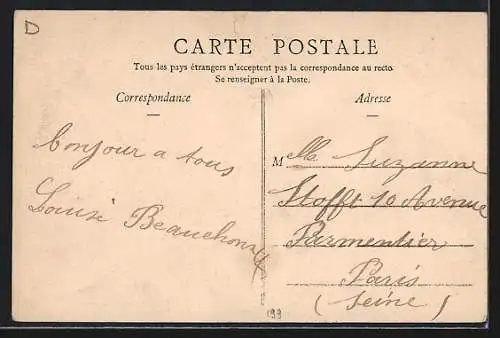 D
CARTE POSTALE
Tous les pays étrangers n'acceptent pas la correspondance au recto.
Se renseigner à la Poste.
Correspondance
Adresse
bonjour a tous
Louise
Mlle Suzanne
Stofft 10 Avenue
Parmentier
Paris
(Seine)
199